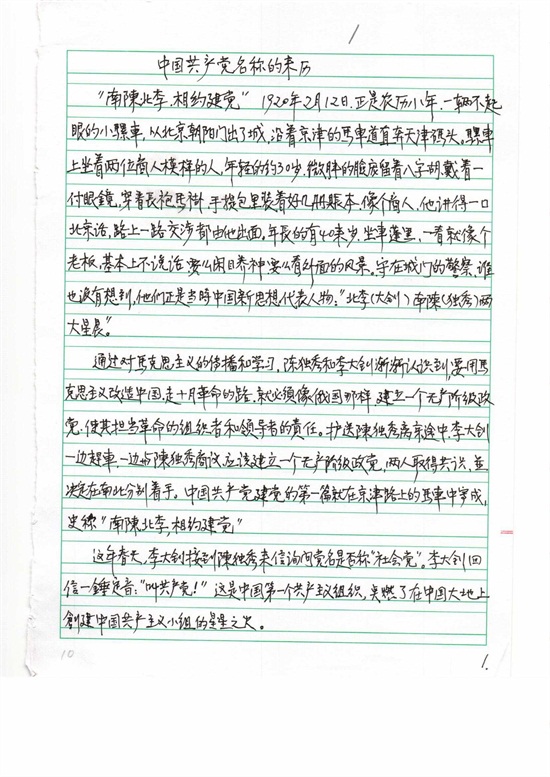 1
中国共产党名称的来历
"南陳北李,相约建党" 1920年2月12日.正是农历小年,一辆不起
眼的小騾車,从北京朝阳门出了城,沿着京津的馬車道直奔天津码头。騾車
上坐着两位商人模样的人,年轻的约30岁,微胖的脸庞留着八字胡.戴着一
付眼鏡,穿着長袍馬褂,手提包里装着好几册賬本.像个商人.他讲得一口
北京话,路上一路交涉都由他出面.年長的有40来岁.坐車蓬里,一看就像个
老板,基本上不说话,要么闲目养神要么看外面的风景。守在城门的警察.谁
也没有想到,他们正是当時中国新思想代表人物:"北李(大剑)南陳(独秀)两
大星晨"。
通过对马克思主义的传播和学习,陈独秀和李大钊渐渐认识到,要用馬
克思主义改造中国,走十月革命的路.就必须像俄国那样,建立一个无产阶级政
党,使其担当革命的组织者和领导者的责任。护送陳独秀离京途中,李大剑
一边趕車,一边与陳独秀商议,应该建立一个无产阶级政党,两人取得共识,並
决定在南北分别着手。中国共产党建党的第一篇就在京津路上的馬車中写成,
史称"南陳北李,相约建党"
这年春天,李大剑接到陳独秀来信询问党名是否称"社会党"。李大剑回
信一錘定音:"叫共产党!" 这是中国第一个共产主义组织,点燃了在中国大地上
創建中国共产主义小组的星星之火。
10
1.